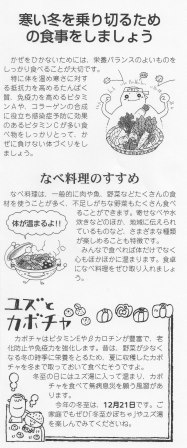 寒い冬を乗り切るため
の食事をしましょう
かぜをひかないためには、栄養バランスのよいものを
しっかり食べることが大切です。
特に体を温め寒さに対
する抵抗力を高めるたんぱ
く質、免疫力を高めるビタミ
ンA や、コラーゲンの合成
に役立ち感染症予防に効果
のあるビタミンCが多い食
べ物をしっかりとって、かぜ
に負けない体づくりをし
ましょう。
なべ料理のすすめ
なべ料理は、一般的に肉や魚、野菜などたくさんの食
材を使うことが多く、不足しがちな野菜もたくさん食べ
ることができます。寄せなべや水
炊きなどのほか、地域に伝えられ
ているものなど、さまざまな種類
が楽しめることも特徴です。
みんなで食べれば体だけでなく
心もほかほかに温まります。食卓
になべ料理をぜひ取り入れましょ
う。
体が温まるよ!!
ユズと
カボチャ
カボチャはビタミンEやβカロテンが豊富で、老
化防止や免疫力を強化します。昔は、野菜が少なく
なる冬の時季に栄養をとるため、夏に収穫したカボ
チャを冬まで取っておいて食べたそうですよ。
冬至の日にはユズ湯に入って温まり、カボチ
ャを食べて無病息災を願う風習があ
ります。
今年の冬至は、12月21日です。ご
家庭でもぜひ「冬至かぼちゃ」やユズ湯
を楽しんでみてくださいね。